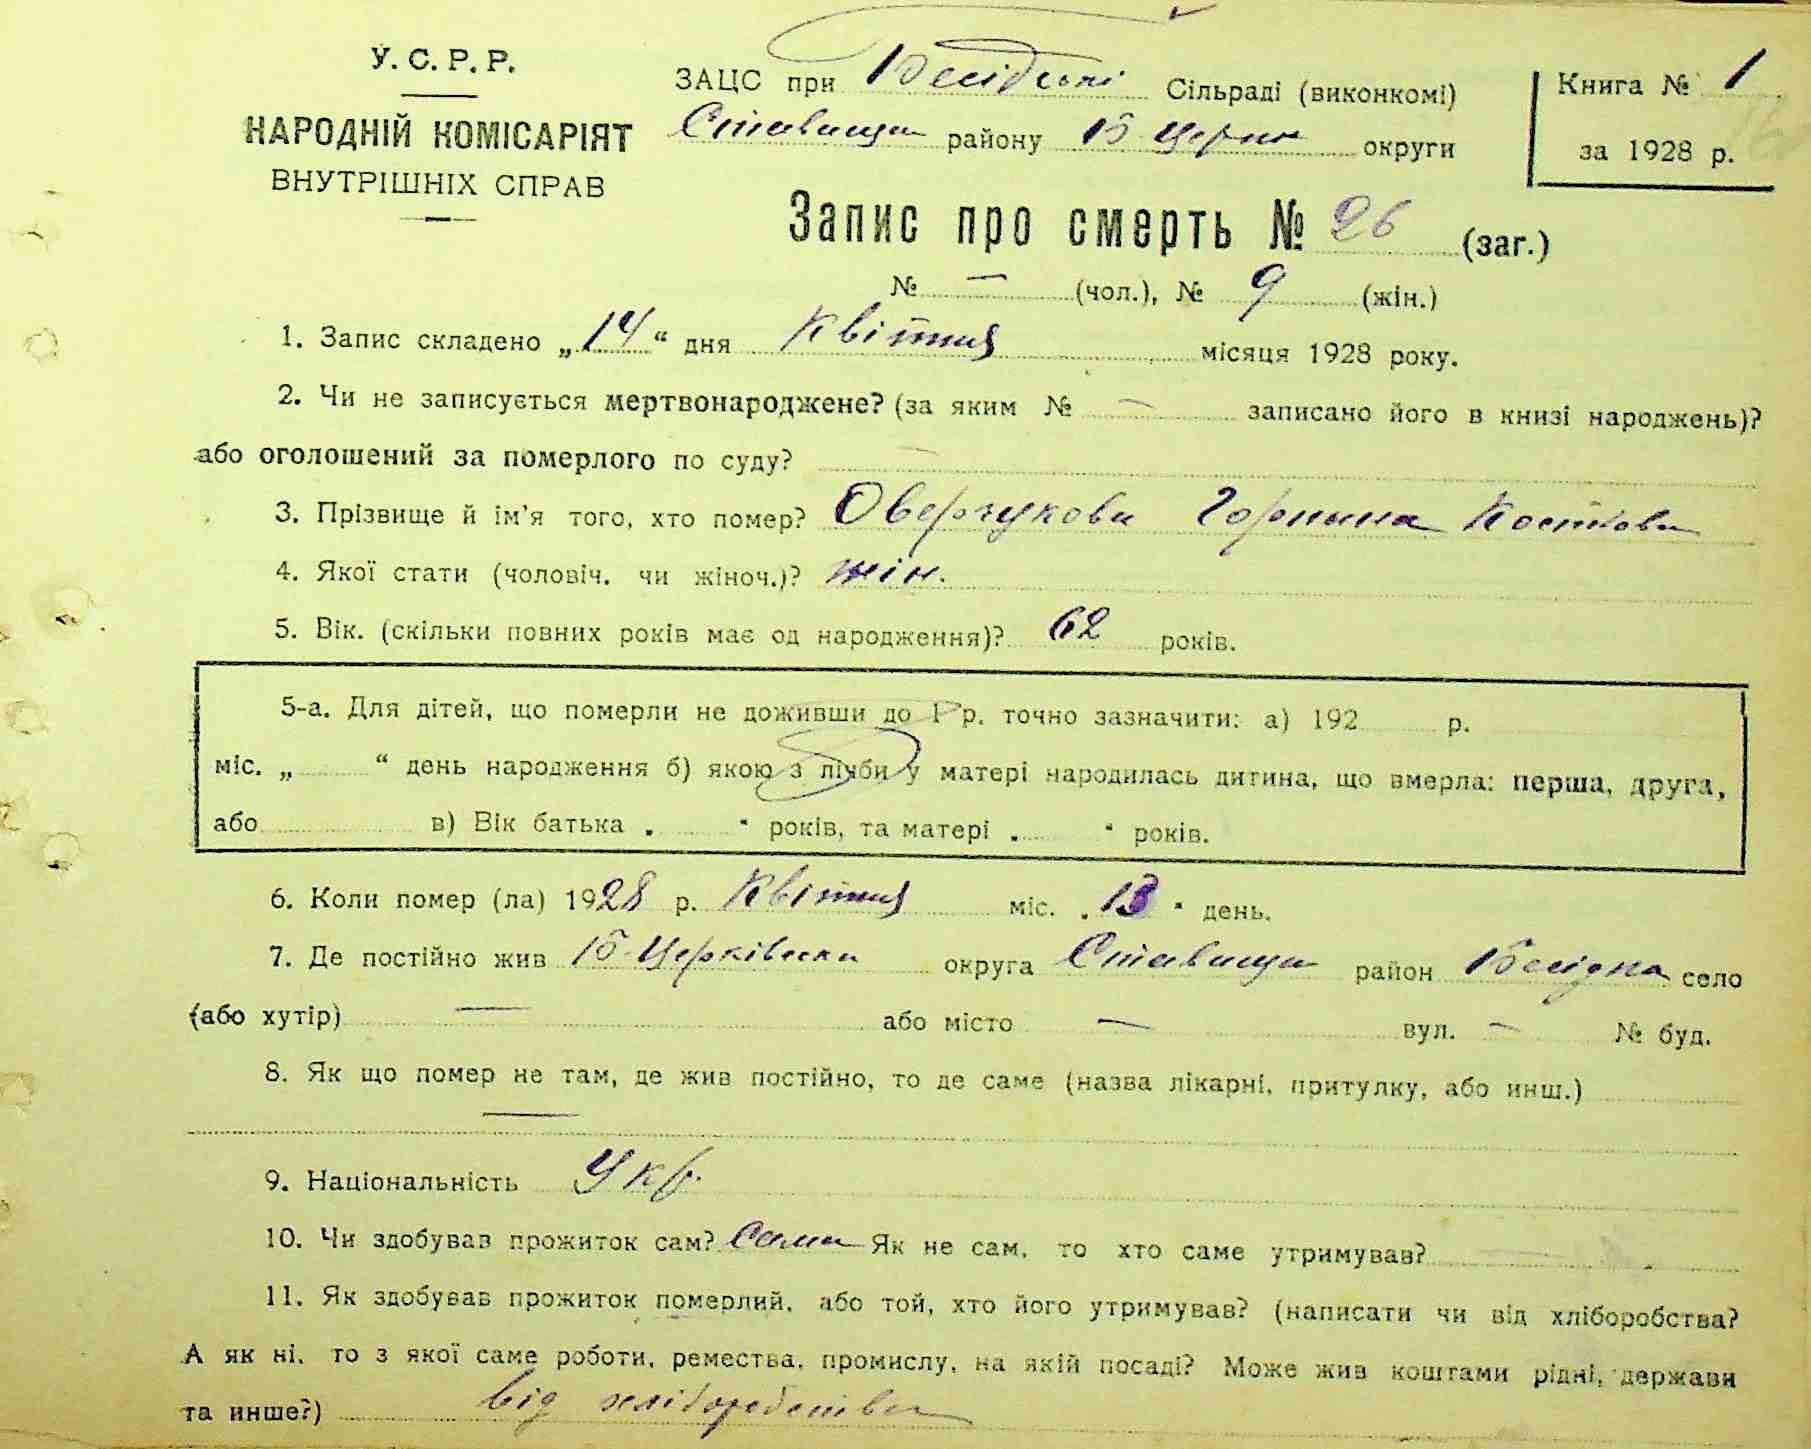 У.С.Р.Р.
НАРОДНІЙ КОМІСАРІЯТ
ВНУТРІШНІХ СПРАВ
ЗАЦС при Бесідські Сільраді (виконкомі)
Ставища району Б Церкв округи
Книга № 1
за 1928 р.
Запис про смерть № 26 (заг.)
№ — (чол.), № 9 (жін.)
1. Запис складено „14“ дня Квітня місяця 1928 року.
2. Чи не записується мертвонароджене? (за яким № — записано його в книзі народжень)?
або оголошений за померлого по суду? —
3. Прізвище й ім'я того, хто помер? Оверчукова Горпина Косткова
4. Якої стати (чоловіч. чи жіноч.)? жін.
5. Вік. (скільки повних років має од народження)? 62 років.
5-а. Для дітей, що померли не доживши до 1 р. точно зазначити: а) 192 р.
міс. „ “ день народження б) якою з лічби у матері народилась дитина, що вмерла: перша, друга,
або в) Вік батька „ “ років, та матері „ “ років.
6. Коли помер (ла) 1928 р. Квітня міс. „13“ день.
7. Де постійно жив Б-Церківська округа Ставища район Бесідка село
(або хутір) — або місто — вул. — № буд.
8. Як що помер не там, де жив постійно, то де саме (назва лікарні, притулку, або инш.)
—
9. Національність Укр.
10. Чи здобував прожиток сам? Сама Як не сам, то хто саме утримував?
11. Як здобував прожиток померлий, або той, хто його утримував? (написати чи від хліборобства?
А як ні, то з якої саме роботи, ремества, промислу, на якій посаді? Може жив коштами рідні, держави
та инше?) від хліборобства